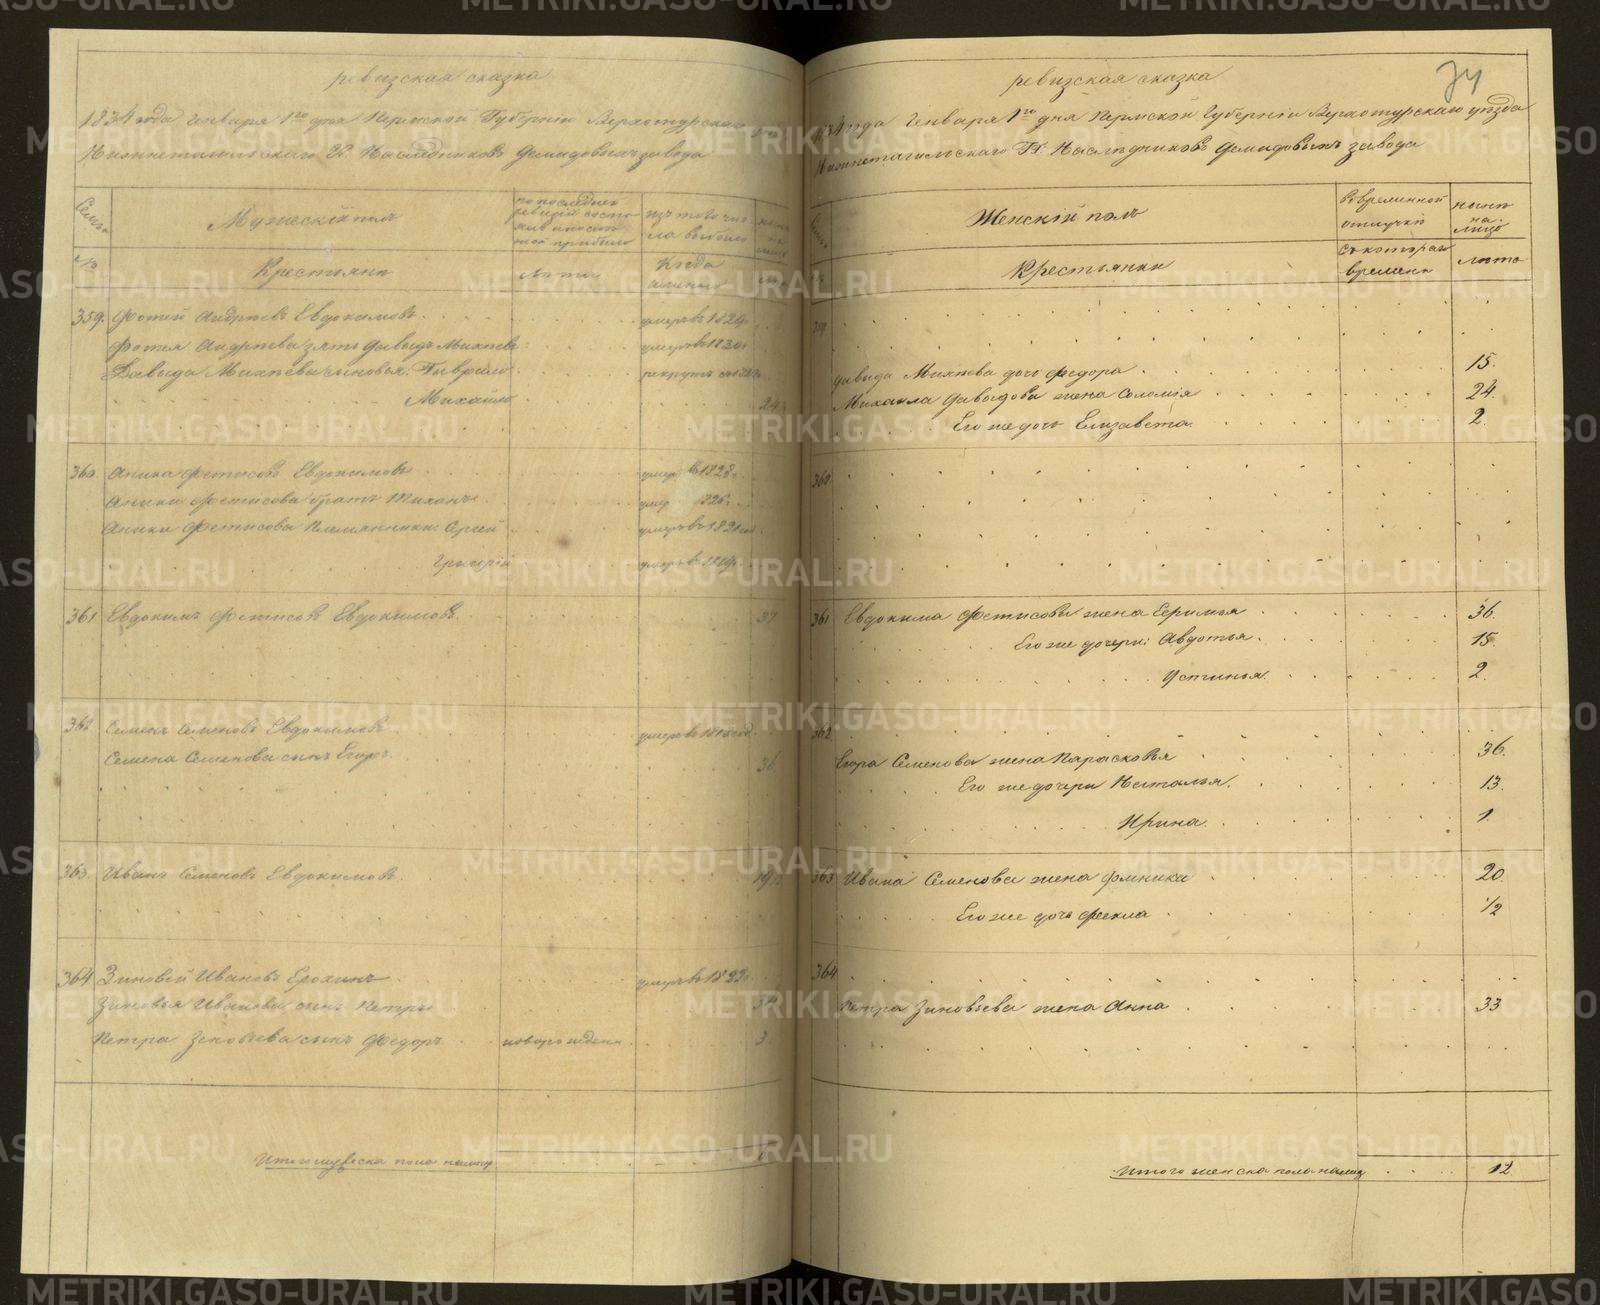 ревизская сказка
1834 года Января 1го дня Пермской Губернии Верхотурскаго
Нижнетагильскаго Гг. Наследниковъ Демидовыхъ завода
Семьи
Мужескій полъ
по последней ревизіи состояло и после той прибыло
изъ того числа выбыло
№
Крестьяне
Лета
Когда именно
359. Фотей Андреевъ Евдокимовъ умеръ въ 1829
Фотея Андреева зять Давыдъ Михеевъ умеръ въ 1830
Давыда Михеева сыновья: Гаврило рекрутъ
Михайло 24
360 Аника Фетисовъ Евдокимовъ умеръ в 1828
Аники Фетисова братъ Тихонъ умер 1826
Аники Фетисова племянники: Сергей умеръ въ 1821
Григорій умеръ въ
361 Евдокимъ Фетисовъ Евдокимовъ 37
362 Семенъ Семеновъ Евдокимовъ умеръ въ 1818
Семена Семенова сынъ Егоръ 36
363. Иванъ Семеновъ Евдокимовъ 19
364 Зиновей Ивановъ Ерохинъ умеръ въ 1822
Зиновья Иванова сынъ Петръ
Петра Зиновьева сынъ Федоръ новорожденъ 3
Итого мужеска пола налицо
74
ревизская сказка
1834 года Генваря 1го дня Пермской Губерніи Верхотурскаго уезда
Нижнетагильскаго Гг. Наследниковъ Демидовыхъ завода
Семьи
Женскій полъ
Во временной отлучке
ныне на лицо
Крестьянки
Съ котораго времени
лета
359
Давыда Михеева дочь Федора 15.
Михаила Давыдова жена Соломія 24
Его же дочь Елизавета 2.
360
361 Евдокима Фетисова жена Еримья 36.
Его же дочери: Авдотья 15.
Устинья 2.
362
Егора Семенова жена Парасковья 36.
Его же дочери Наталья. 13.
Ирина 1.
363 Ивана Семенова жена 20.
Его же дочь Фекла 1/2
364
Петра Зиновьева жена Анна 33
Итого женска пола налицо 12.
METRIKI.GASO-URAL.RU